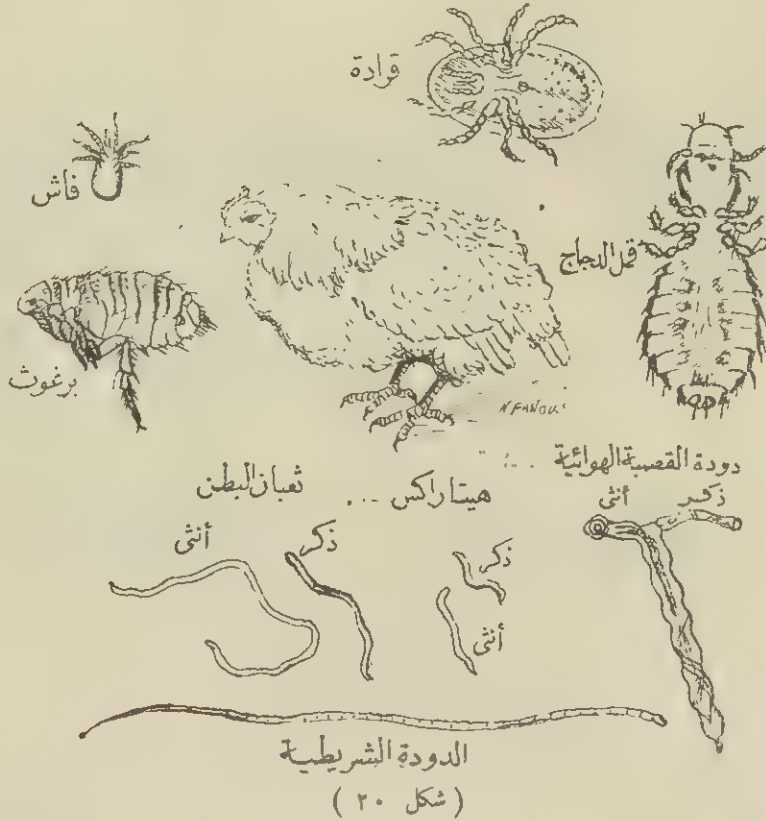 قرادة
فاش
قمل الدجاج
برغوث
N FANOUS
دودة القصبة الهوائية
ذكر أنثى
هيتراكس
ثعبان البطن
ذكر
أنثى
ذكر
أنثى
الدودة الشريطية
( شكل ٢٠ )